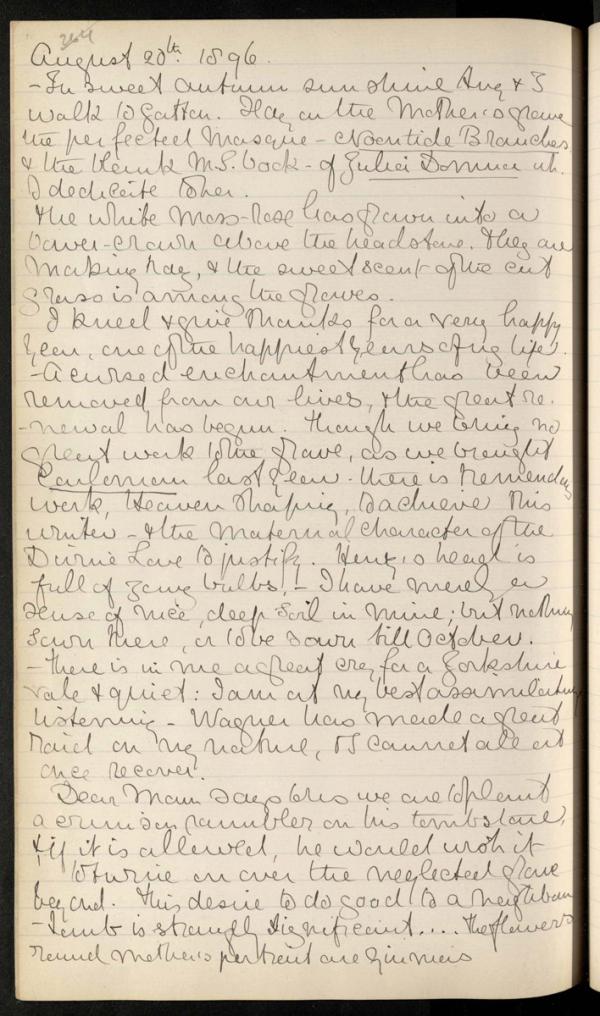 264
August 20th. 1896.
- In sweet autumn sunshine Hny & I
walk to Gatton. I lay on the Mother's grave
the perfected Masque - Noontide Branches
& the blank M.S. book - of Julia Domna wh.
I dedicate to her.
The white moss-rose has grown into a
bower-crown above the headstone. They are
making hay, & the sweet scent of the cut
grass is among the graves.
I kneel & give thanks for a very happy
year, one of the happiest years of my life.
- A cursed enchantment has been
removed from our lives, & the great re-
-newal has begun. Though we bring no
great work to the grave, as we brought
Carloman last year - there is tremendous
work, Heaven shaping, to achieve this
winter - & the Maternal character of the
Divine Love to justify. Heny's head is
full of young bulbs! - I have merely a
sense of nice, deep soil in mine; but nothing
sown there, or to be sown till October.
- There is in me a great cry for a Yorkshire
vale & quiet: I am at my best assimilating,
listening - Wagner has made a great
raid on my nature, & I cannot all at
once recover.
Dear Mam says to us we are to plant
a crimson rambler on his tombstone,
& if it is allowed, he would wish it
to twine on over the neglected grave
beyond. This desire to do good to a neighbour
-tomb is strangely significant.... The flowers
round Mother's portrait are zinnias